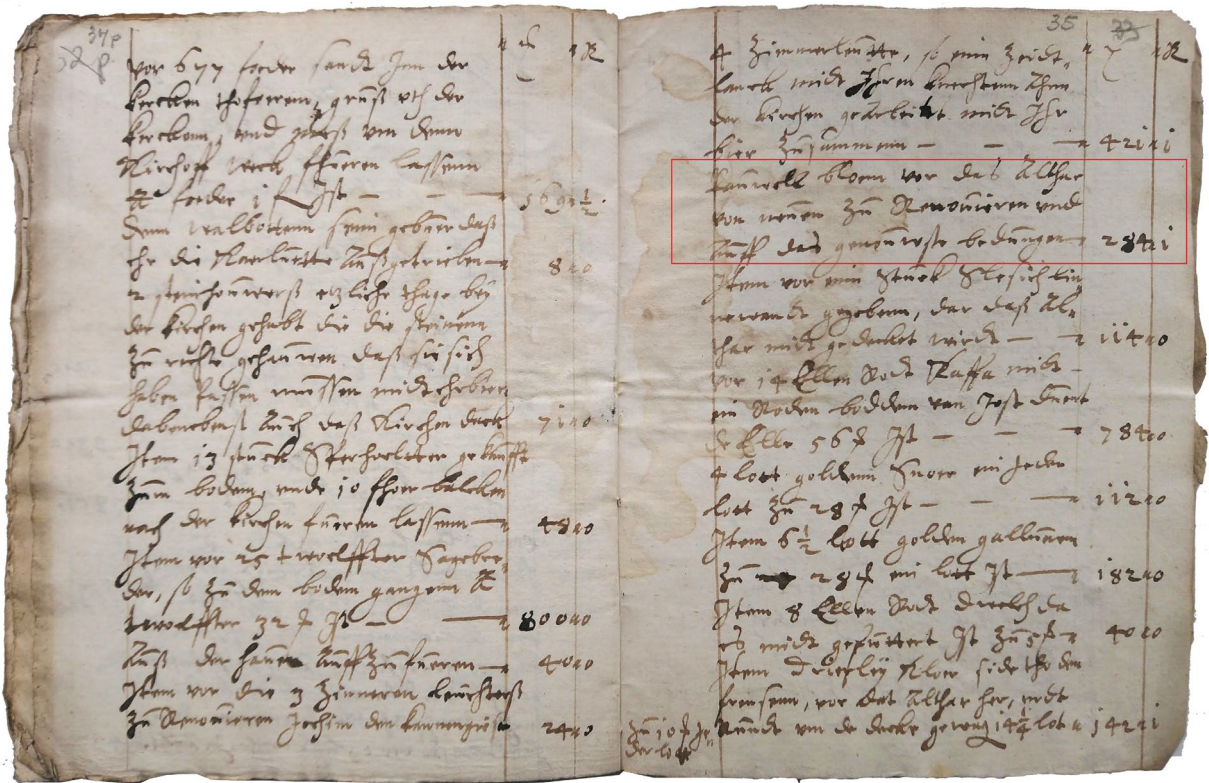 34
32
vor 677 foeder sandt Inn der
kercken thofoeren, gruß vth der
kerckenn, vnd vom denn
Kirchoff weck fhueren lassenn
foeder 1 Ist — — — 569 1/2
Denn walbottenn sein gebuer daß
ehr die Außgetrieben 8 0
2 steinhouwerß etzliche thage bey
der kirchen gehabt die die steinenn
zu rechte gehauwen daß sie sich
haben passen mussen midt
Auch daß Kirchen dack 71 0
Item 13 stuck gekaufft
zum boden, vnde 10 fhoer balcken
nach der kirchen fueren lassenn 48 0
Item vor 25 twolffter Sagebre-
der, so zu dem boden gangenn
twolffter 32 Ist — 800 0
Auß der hauen Auff zu fueren 40 0
Item vor die 3 Zinneren leuchterß
zu Renouieren Jochim den kannengeiser 24 0
35 33
4 Zimmerleutte, so ein Zeidt-
lanck midt Ihren knechtenn Ahnn
der kirchen gearbeitet midt Ihr
bier Zusammenn — — 421 1
Pauwell bloem vor das Althar
von neuen zu Renouieren vnd
Auff das genouweste bedungen 284 1
Item vor ein Stuck Slesich lin-
newandt gegebenn, dar daß Al-
thar midt gedecket wirdt — 114 0
vor 14 Ellen Rodt Kaffa midt
ein Roden boddem van Jost
de Elle 56 Ist — — — 784 0
4 lott golden Snore ein Jeder
lott zu 28 Ist — — 112 0
Item 6 1/2 lott golden gallunen
zu 28 ein lott Ist — 182 0
Item 8 Ellen Rodt da
es midt gefuttert Ist zu 5 40 0
Item Drierley Kloer side tho den
frensenn, vor dat Althar her, vndt
Rundt vm de decke gewegt 14 1/4 lot 142 1
zu 10 Je-
der lot